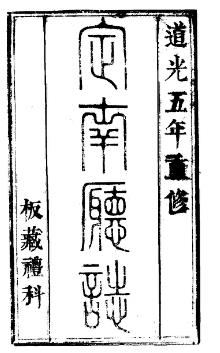 道光五年重修
定南廳誌
板藏禮科